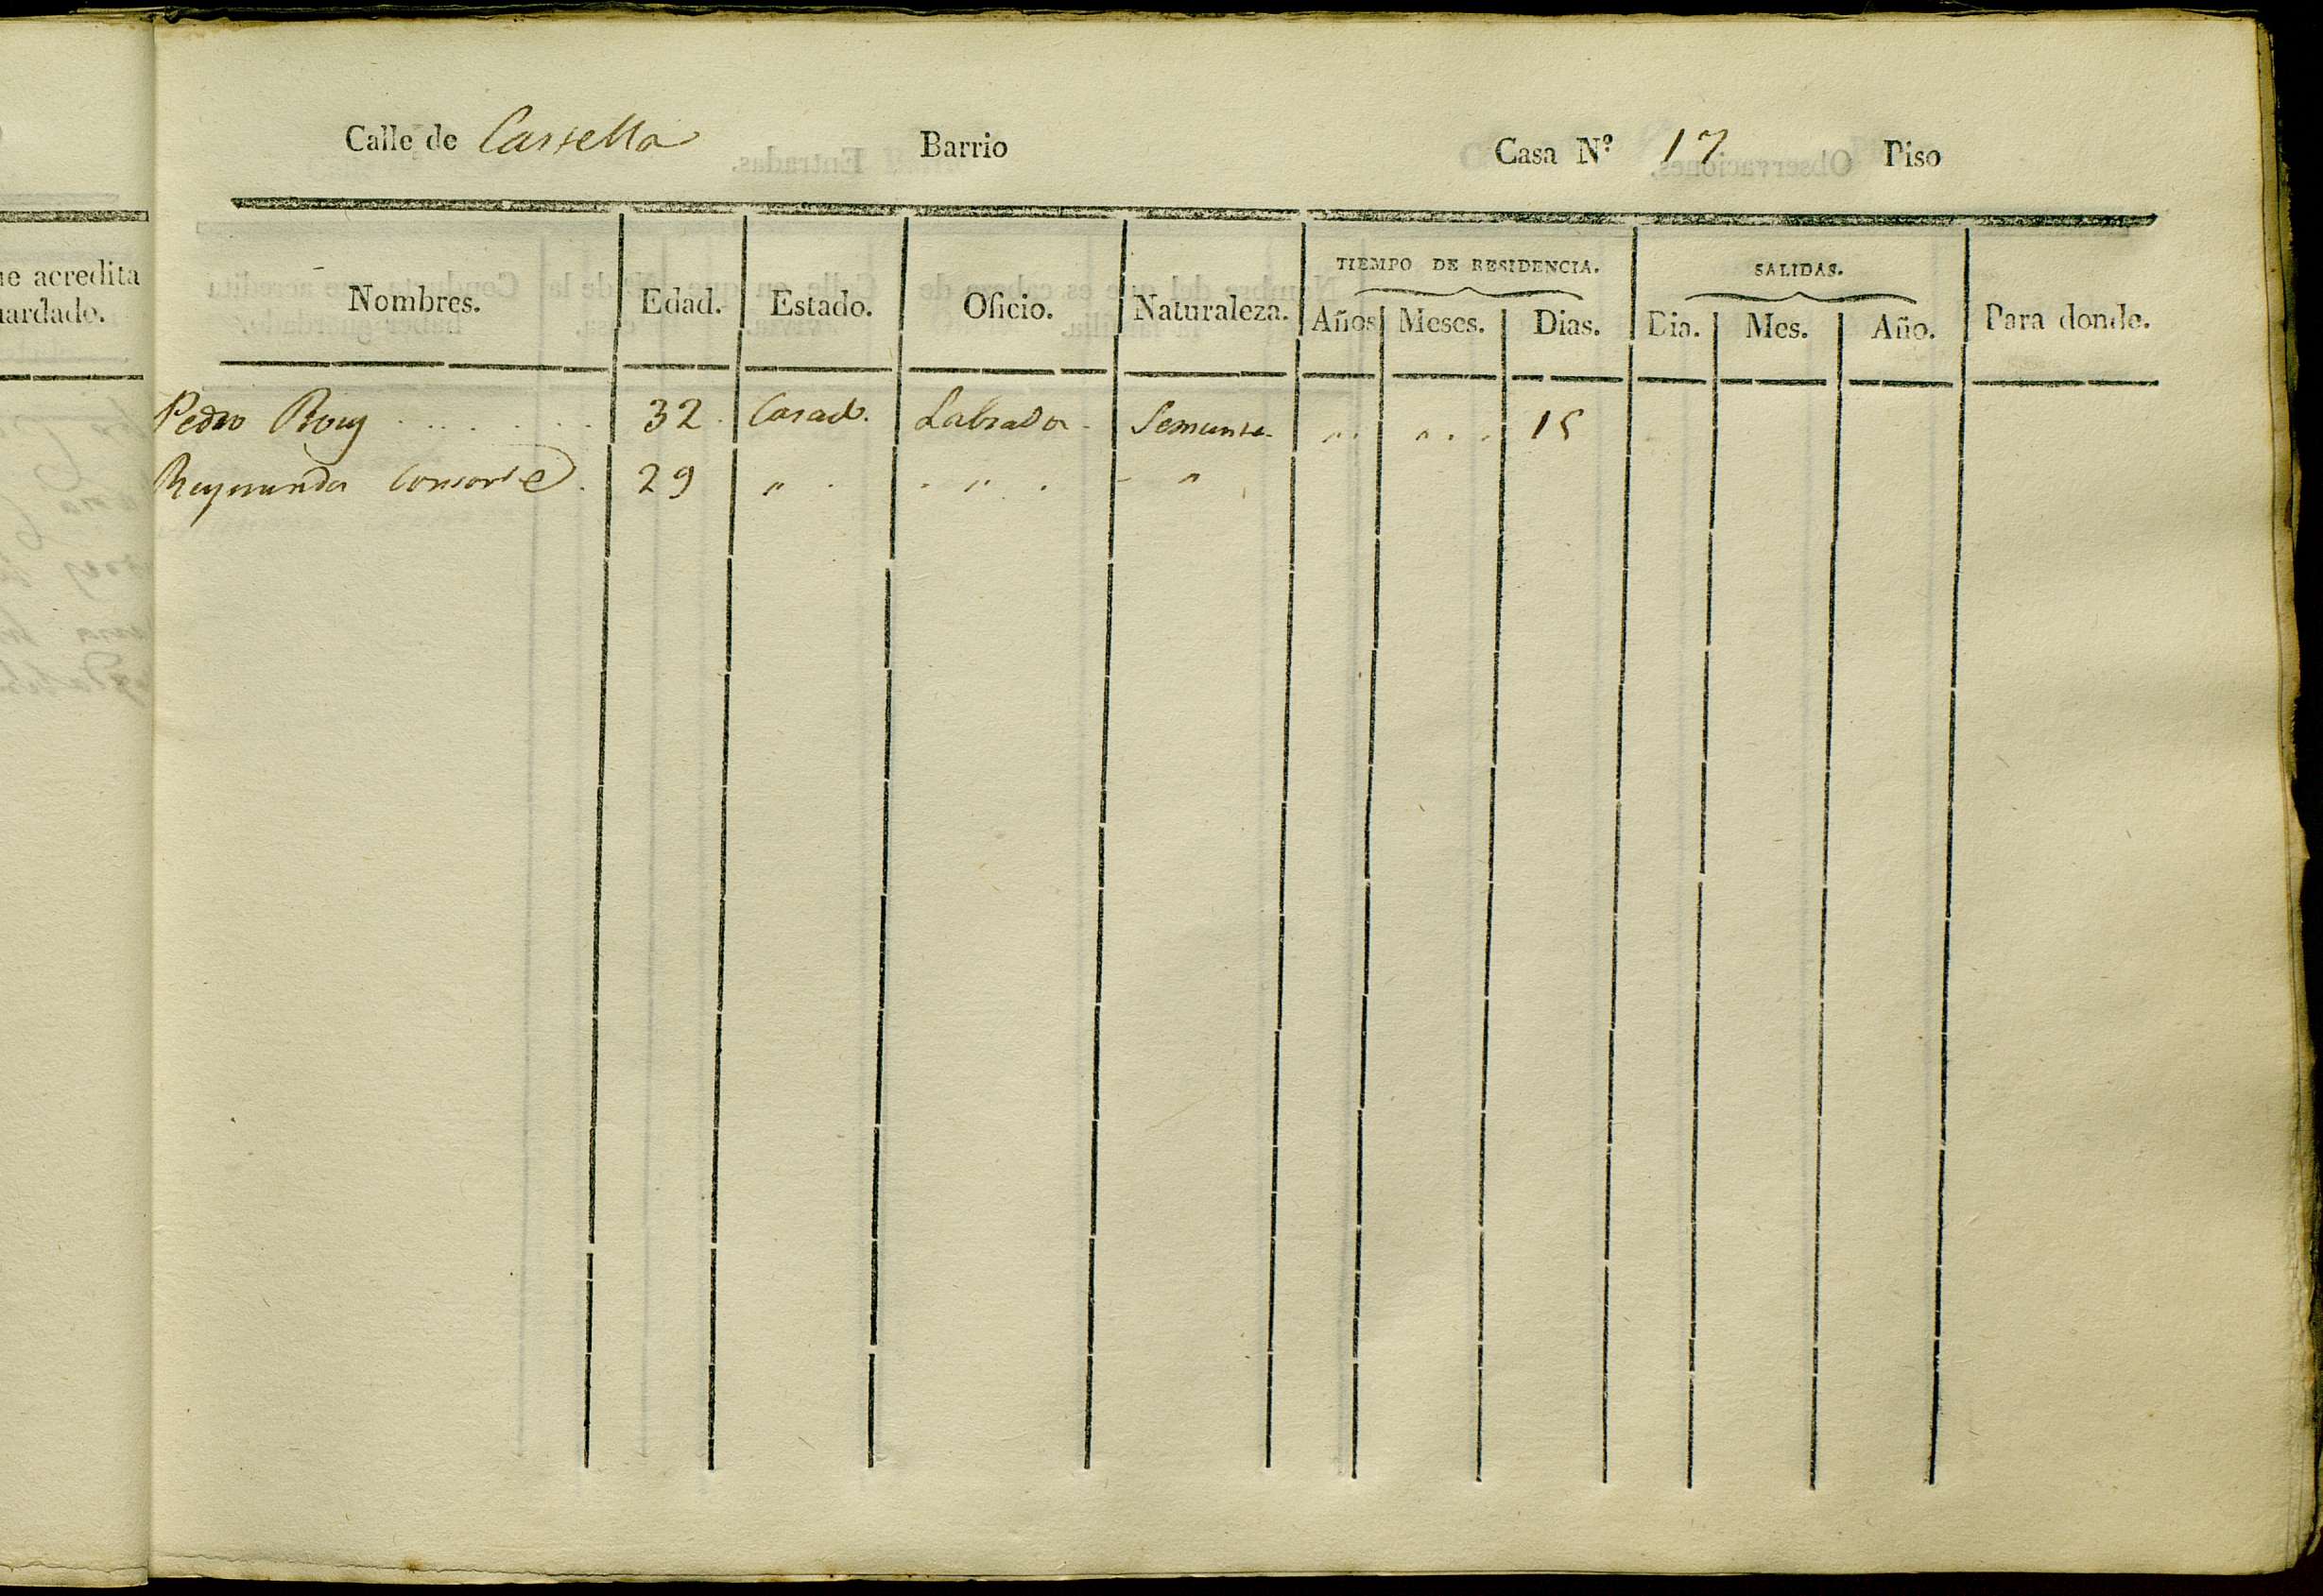 Calle de Castella Barrio Casa Nº 17 Piso
ue acredita
uardado.
Nombres. Edad. Estado. Oficio. Naturaleza. TIEMPO DE RESIDENCIA. Años Meses. Dias. SALIDAS. Dia. Mes. Año. Para donde.
Pedro Roug 32 Casad. Labrador 15
Raymunda Consorte 29 " " "